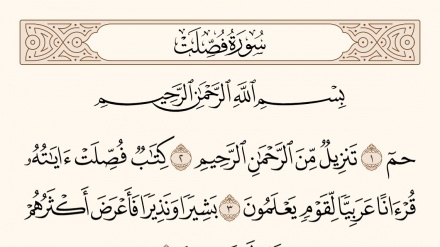 سُورَةُ فُصِّلَتْ
بِسْمِ ٱللَّهِ ٱلرَّحْمَٰنِ ٱلرَّحِيمِ
حمٓ ١ تَنزِيلٌ مِّنَ ٱلرَّحْمَٰنِ ٱلرَّحِيمِ ٢ كِتَٰبٌ فُصِّلَتْ ءَايَٰتُهُۥ
قُرْءَانًا عَرَبِيًّا لِّقَوْمٍ يَعْلَمُونَ ٣ بَشِيرًا وَنَذِيرًا فَأَعْرَضَ أَكْثَرُهُمْ